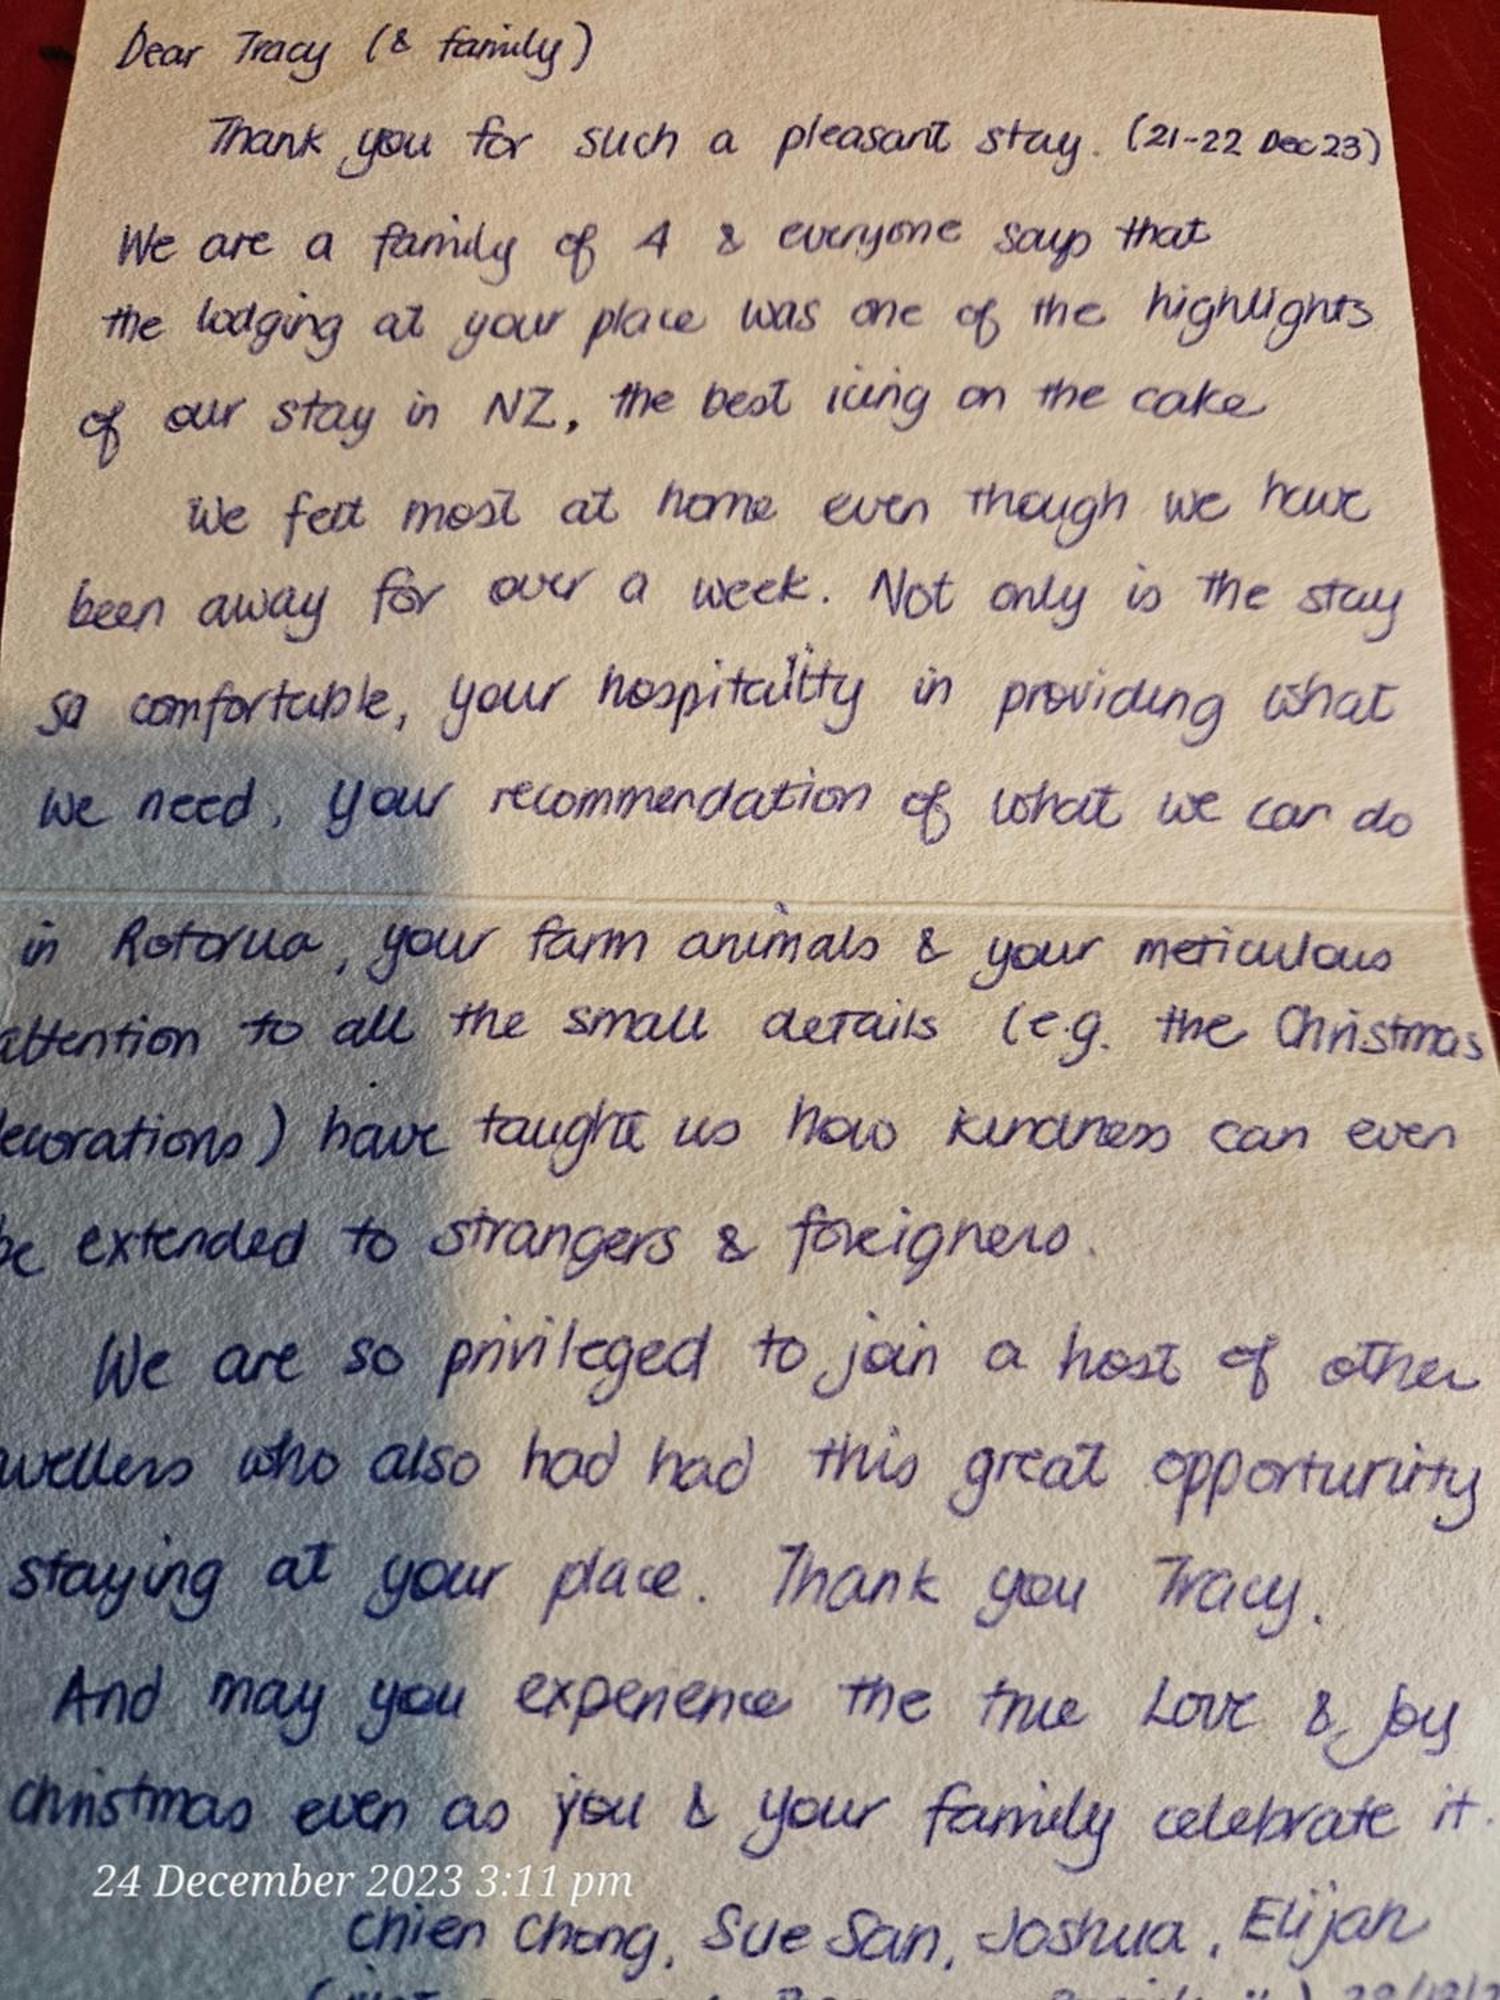 Dear Tracy (& family)
Thank you for such a pleasant stay. (21-22 Dec 23)
We are a family of 4 & everyone says that
the lodging at your place was one of the highlights
of our stay in NZ, the best icing on the cake
We felt most at home even though we have
been away for over a week. Not only is the stay
so comfortable, your hospitality in providing what
we need, your recommendation of what we can do
in Rotorua, your farm animals & your meticulous
attention to all the small details (e.g. the Christmas
ecorations) have taught us how kindness can even
be extended to strangers & foreigners.
We are so privileged to join a host of other
avellers who also had had this great opportunity
staying at your place. Thank you Tracy.
And may you experience the true Love & Joy
christmas even as you & your family celebrate it.
24 December 2023 3:11 pm
Chien Chong, Sue San, Joshua, Elijah